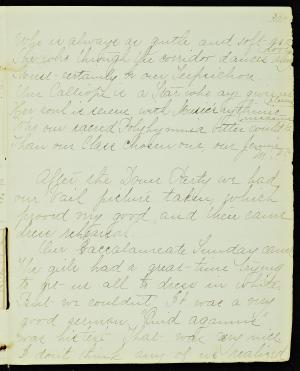 Who is always as gentle and soft
She who through the corridor dances
Must certainly be our Terpsichore
Our Calliope is a Star who aye
Her soul is serene with Music's rythmic
Nor our sacred Polyhymnia
than our Class chosen one, our
After the Dove Party we had
our Vail picture taken, which
proved very good and then came
dress rehearsal.
Our Baccalaureate Sunday came
The girls had a great time trying
to get us all to dress in white
But we couldn't. It was a very
good sermon.
was his text. That was very nice
I don't think any of us realized